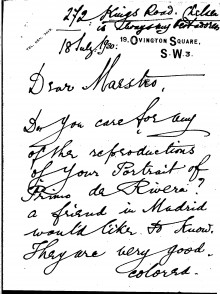 272 Kings Road.
is always my best address
19, OVINGTON SQUARE,
S.W.3.
18 July 1920.
Dear Maestro,
Do you care for any
of the reproductions
of your Portrait of
Primo de Rivera?
a friend in Madrid
would like to know.
They are very good.
colored.